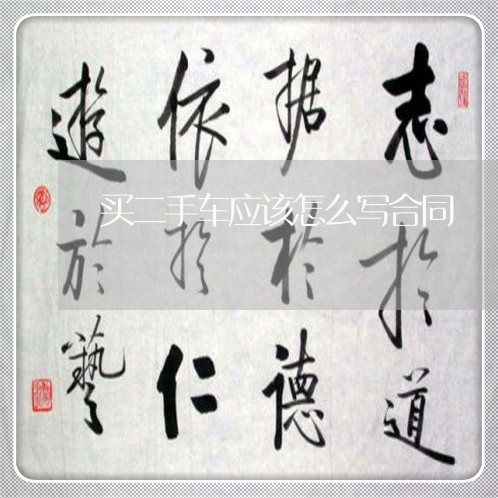 志於道
据於德
依於仁
遊於藝
买二手车应该怎么写合同